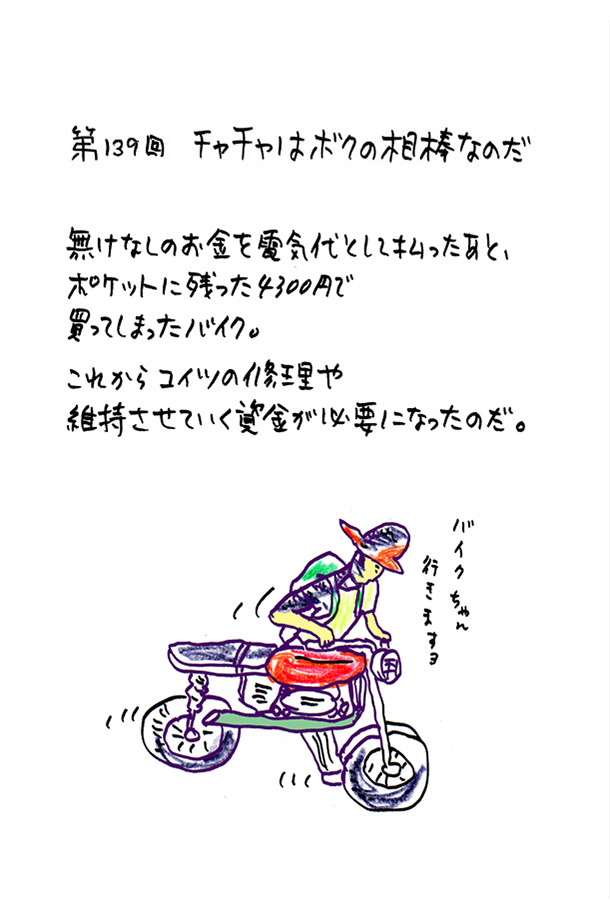 第139回 チャチャはボクの相棒なのだ
無けなしのお金を電気代として払ったあと、
ポケットに残った4300円で
買ってしまったバイク。
これからコイツの修理や
維持させていく資金が必要になったのだ。
バイクちゃん
行きますヨ